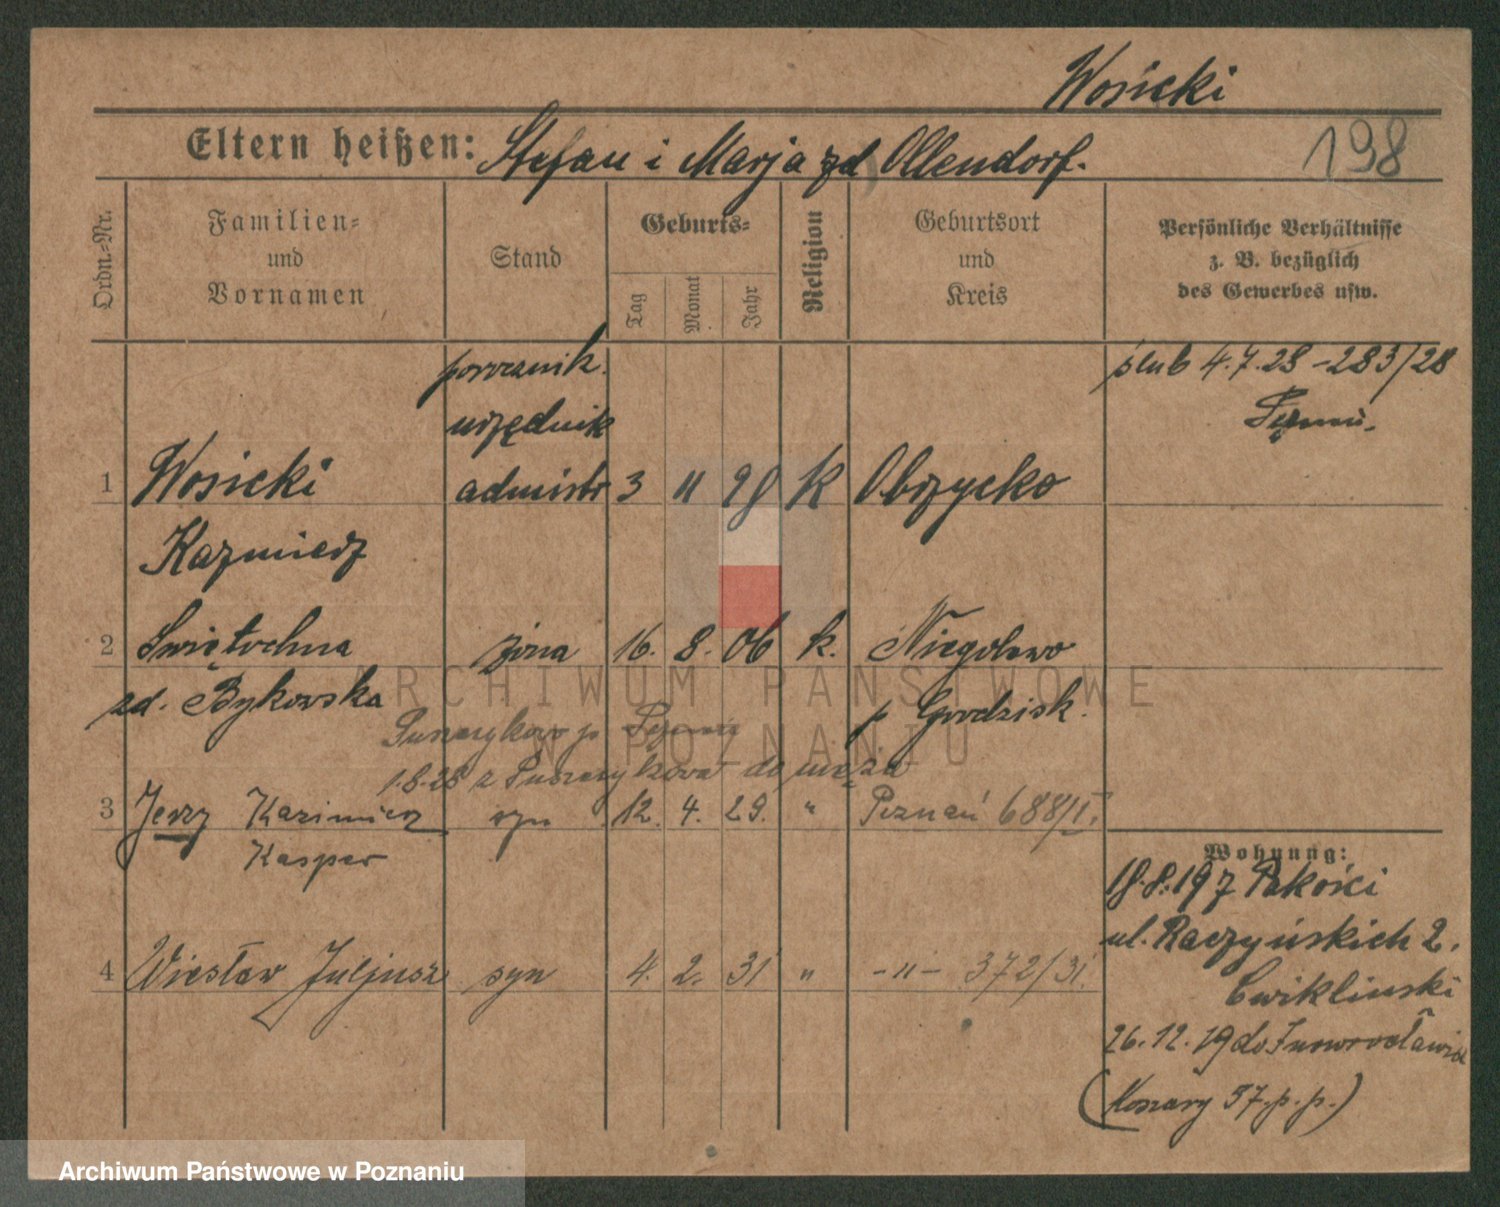 Wosicki
Eltern heißen: Stefan i Marja zd Ollendorf.
198
Ordn.-Nr.
Familien- und Vornamen
Stand
Geburts-
Tag
Monat
Jahr
Religion
Geburtsort und Kreis
Persönliche Verhältnisse z. B. bezüglich des Gewerbes usw.
porucznik.
urzędnik
ślub 4.7.28 - 283/28
1 Wosicki admistr 3 11 98 k Obrzycko
Kazmierz
2 Swiętochna żona 16. 8. 06 k. Niegolewo
zd. Bykowska p Grodzisk.
1.8.28 z Puszczykowa do męża
3 Jerzy Kazimierz syn 12. 4. 29. " Poznań 688/II.
Kasper
4 Wiesław Juljusz syn 4. 2. 31 " -"- 372/31.
Wohnung:
18.8.19 z Pakości
ul. Raczyńskich 2.
Cwiklinski
26.12.19 do Inowrocławia
(Koszary 57.p.p.)
ARCHIWUM PAŃSTWOWE
W POZNANIU
Archiwum Państwowe w Poznaniu